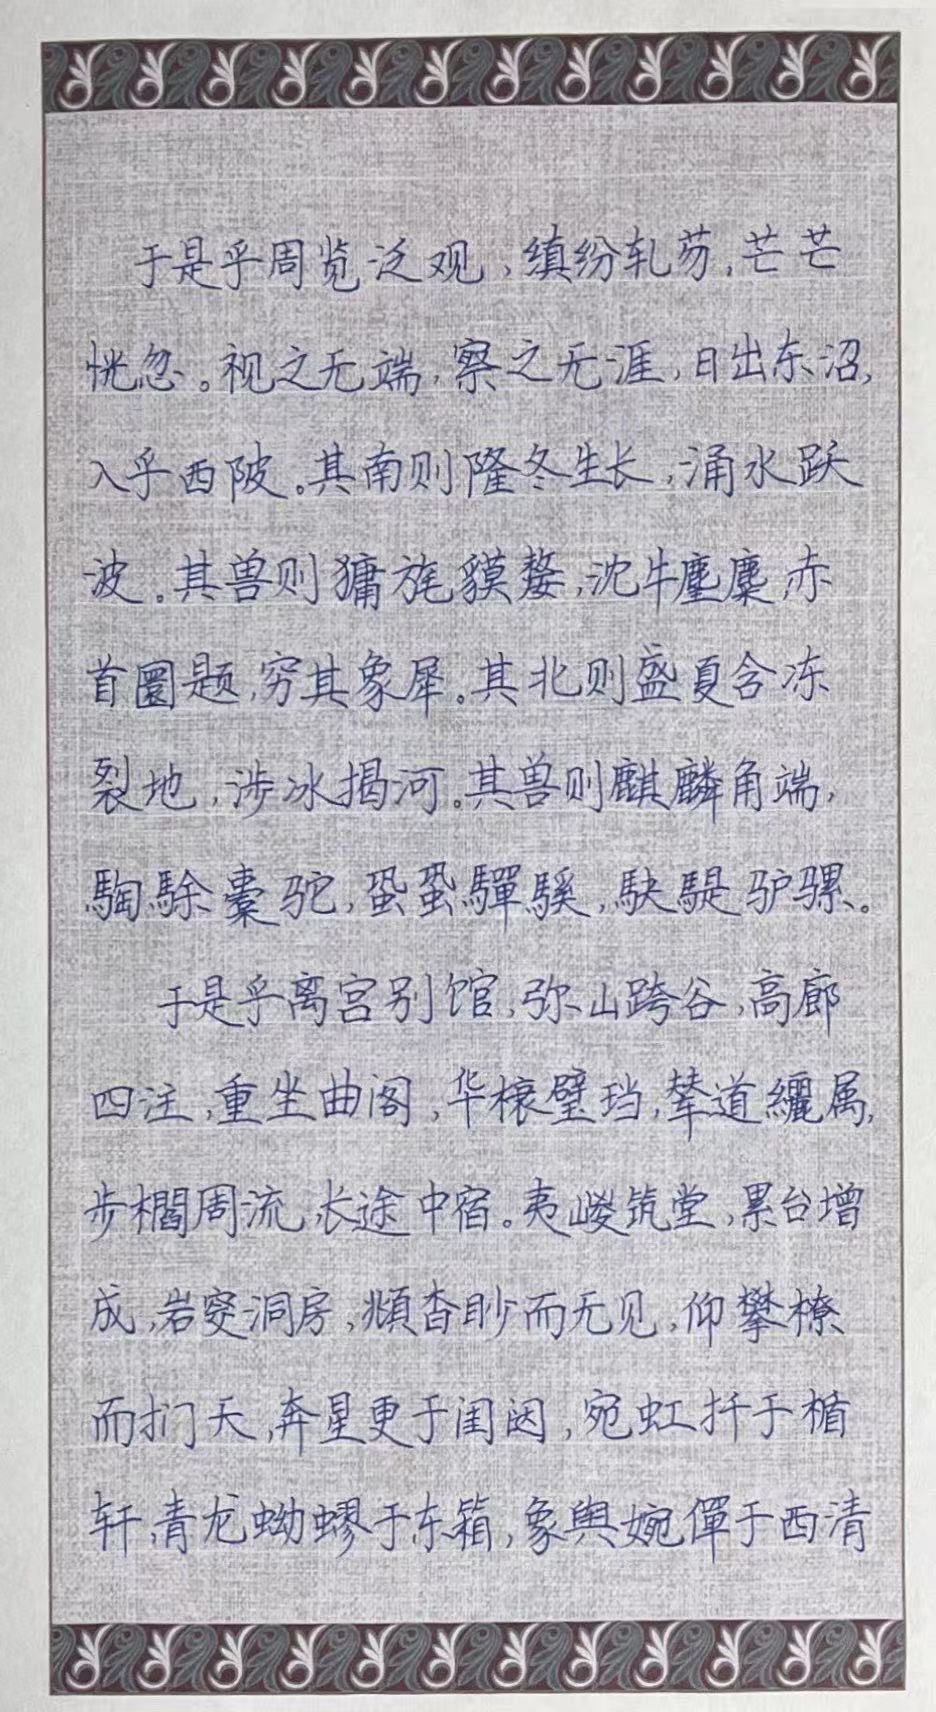 于是乎周览泛观，缜纷轧芴，芒芒
恍忽。视之无端，察之无涯，日出东沼，
入乎西陂。其南则隆冬生长，涌水跃
波。其兽则㺎旄貘嫠，沈牛麈麋，赤
首圜题，穷其象犀。其北则盛夏含冻
裂地，涉冰揭河。其兽则麒麟角端，
騊駼橐驼，蛩蛩驒騱，駃騠驴骡。
于是乎离宫别馆，弥山跨谷，高廊
四注，重坐曲阁，华榱璧珰，辇道纚属，
步櫩周流，长途中宿。夷嵕筑堂，累台增
成，岩窔洞房，頫杳眇而无见，仰攀橑
而扪天，奔星更于闺闼，宛虹扦于楯
轩，青龙蚴蟉于东箱，象舆婉僤于西清